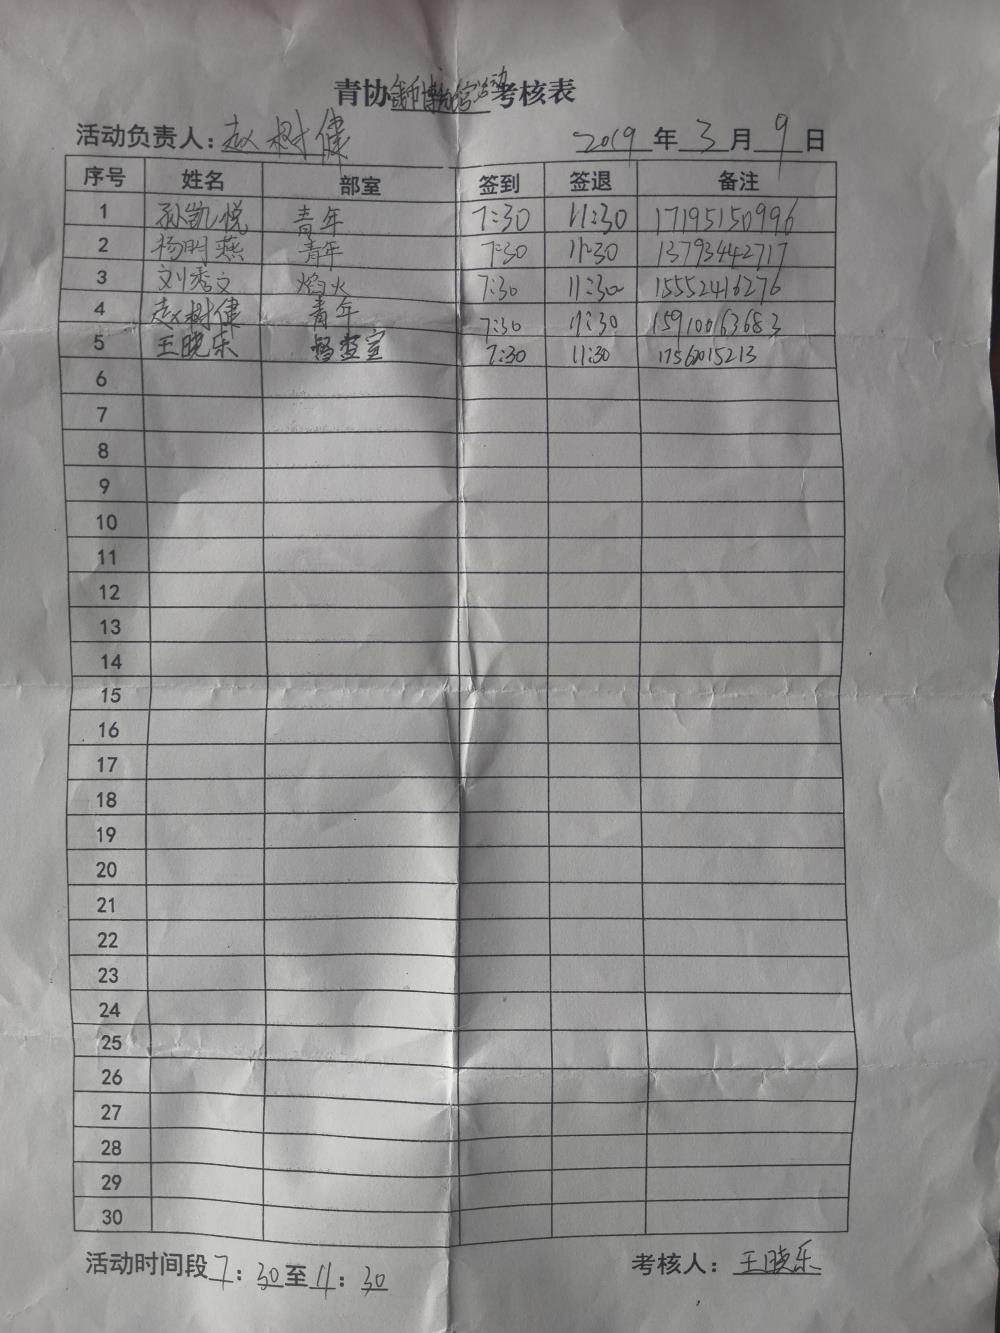 青协钱币博物馆活动考核表
活动负责人：赵树健 2019年3月9日
序号 姓名 部室 签到 签退 备注
1 孙凯悦 青年 7:30 11:30 17195150996
2 杨明燕 青年 7:30 11:30 13793442717
3 刘秀文 焰火 7:30 11:30 15552416276
4 赵树健 青年 7:30 11:30 15910063683
5 王晓乐 督查室 7:30 11:30 17560015213
6
7
8
9
10
11
12
13
14
15
16
17
18
19
20
21
22
23
24
25
26
27
28
29
30
活动时间段7：30至11：30 考核人：王晓乐